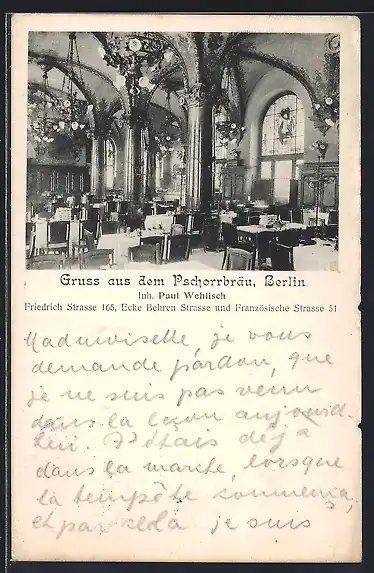 Gruss aus dem Pschorrbräu, Berlin
Inh. Paul Wehlisch
Friedrich Strasse 165, Ecke Behren Strasse und Französische Strasse 51
Mademoiselle, je vous
demande pardon, que
je ne suis pas venu
dans la leçon aujourd-
hui. J'étais déjà
dans la marche, lorsque
la tempête commença,
et par cela je suis